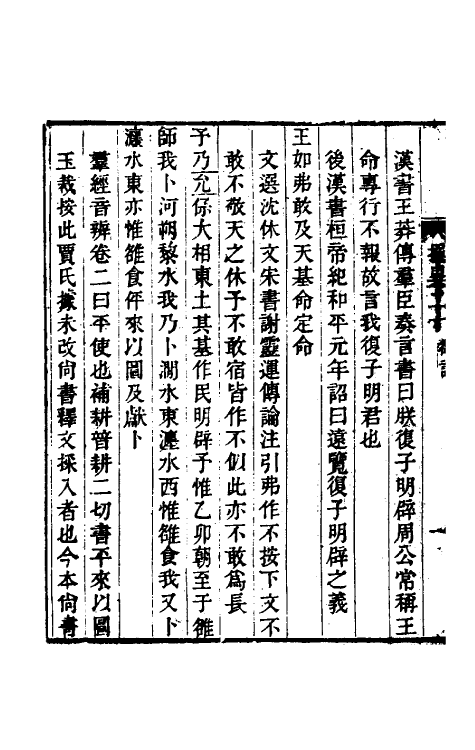 漢書王莽傳羣臣奏言書曰朕復子明辟周公常稱王
命專行不報故言我復子明君也
後漢書桓帝紀和平元年詔曰遠覽復子明辟之義
王如弗敢及天基命定命
文選沈休文宋書謝靈運傳論注引弗作不按下文不
敢不敬天之休予不敢宿皆作不似此亦不敢爲長
予乃允保大相東土其基作民明辟予惟乙卯朝至于雒
師我卜河朔黎水我乃卜澗水東瀍水西惟雒食我又卜
瀍水東亦惟雒食伻來以圖及獻卜
羣經音辨卷二曰平使也補耕普耕二切書平來以圖
玉裁按此賈氏據未改尙書釋文採入者也今本尙書